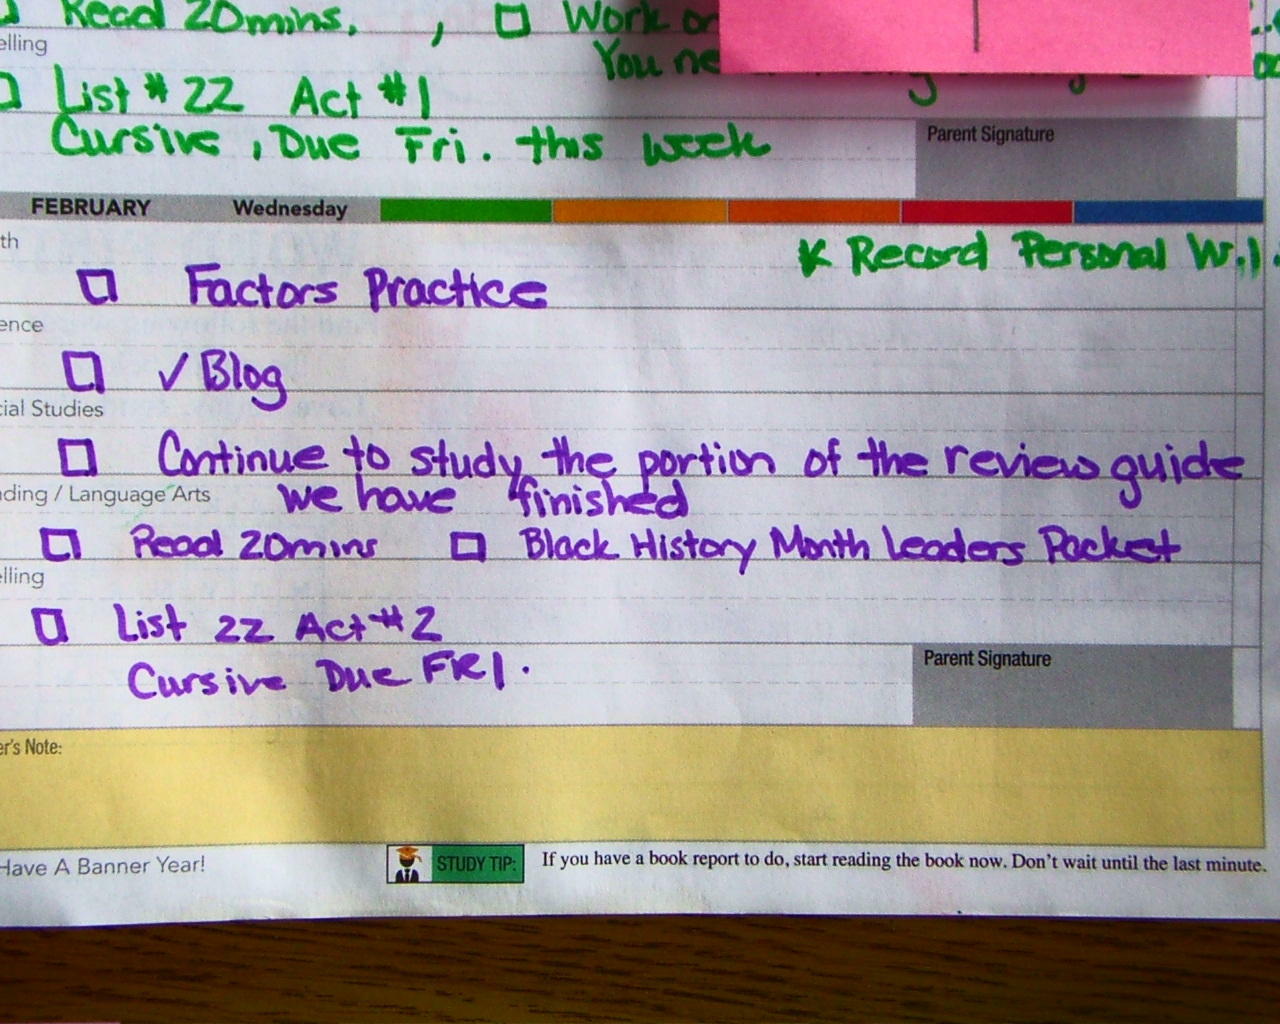 Read 20mins. , Work on
elling You ne
List # 22 Act #1
Cursive, Due Fri. this week
Parent Signature
FEBRUARY Wednesday
th * Record Personal W.1.
Factors Practice
ence
✓ Blog
cial Studies
Continue to study the portion of the review guide
ding / Language Arts we have finished
Read 20mins Black History Month Leaders Packet
elling
List 22 Act #2
Cursive Due FRI.
Parent Signature
er's Note:
Have A Banner Year!
STUDY TIP: If you have a book report to do, start reading the book now. Don't wait until the last minute.